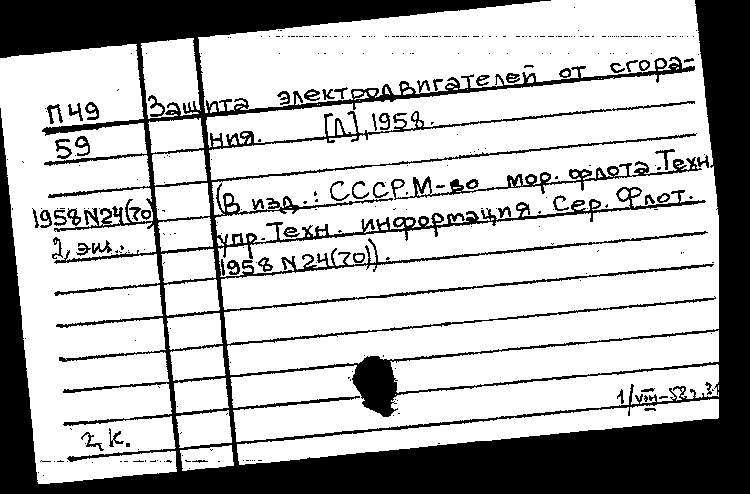 П49 Защита электродвигателей от сгора-
59 ния. [Л.], 1958.
(В изд.: СССР. М-во мор. флота. Техн.
1958 N24(70) упр. Техн. информация. Сер. Флот.
2 экз. 1958 N 24(70)).
1/VIII-58г.
2, к.